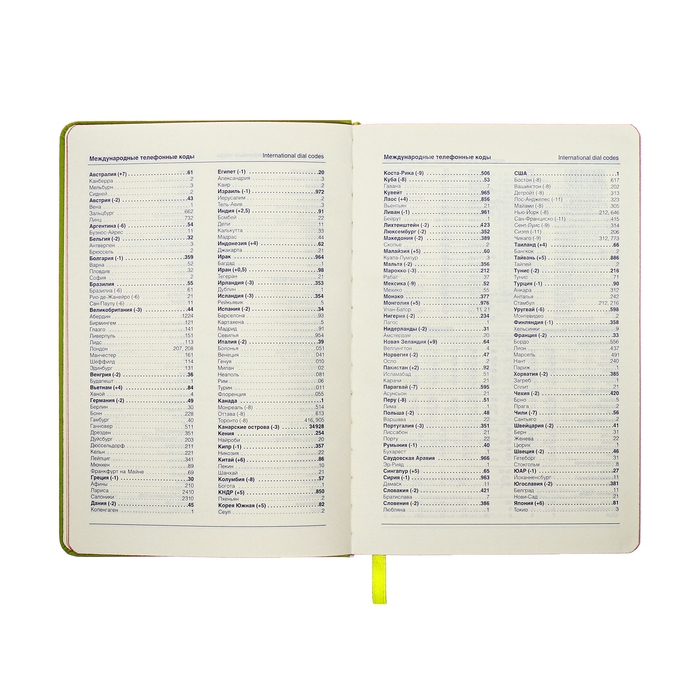 Международные телефонные коды International dial codes
Австралия (+7) 61
Канберра 2
Мельбурн 3
Сидней 2
Австрия (-2) 43
Вена 1
Зальцбург 662
Линц 732
Аргентина (-6) 54
Буэнос-Айрес 11
Бельгия (-2) 32
Антверпен 3
Брюссель 2
Болгария (-1) 359
Варна 52
Пловдив 32
София 2
Бразилия 55
Бразилиа (-6) 61
Рио-де-Жанейро (-6) 21
Сан-Паулу (-6) 11
Великобритания (-3) 44
Абердин 1224
Бирмингем 121
Глазго 141
Ливерпуль 151
Лидс 113
Лондон 207, 208
Манчестер 161
Шеффилд 114
Эдинбург 131
Венгрия (-2) 36
Будапешт 1
Вьетнам (+4) 84
Ханой 4
Германия (-2) 49
Берлин 30
Бонн 228
Гамбург 40
Ганновер 511
Дрезден 351
Дуйсбург 203
Дюссельдорф 211
Кельн 221
Лейпциг 341
Мюнхен 89
Франкфурт на Майне 69
Греция (-1) 30
Афины 210
Лариса 2410
Салоники 2310
Дания (-2) 45
Копенгаген 1
Египет (-1) 20
Александрия 3
Каир 2
Израиль (-1) 972
Иерусалим 2
Тель-Авив 3
Индия (+2,5) 91
Бомбей 22
Дели 11
Калькутта 33
Мадрас 44
Индонезия (+4) 62
Джакарта 21
Ирак 964
Багдад 1
Иран (+0,5) 98
Тегеран 21
Ирландия (-3) 353
Дублин 1
Исландия (-3) 354
Рейкьявик 1
Испания (-2) 34
Барселона 93
Картахена 5
Мадрид 91
Севилья 954
Италия (-2) 39
Болонья 051
Венеция 041
Генуя 010
Милан 02
Неаполь 081
Рим 06
Турин 011
Флоренция 055
Канада 1
Монреаль (-8) 514
Оттава (-8) 613
Торонто (-8) 416, 905
Канарские острова (-3) 34928
Кения 254
Найроби 20
Кипр (-1) 357
Никозия 22
Китай (+6) 86
Пекин 10
Шанхай 21
Колумбия (-8) 57
Богота 1
КНДР (+5) 850
Пхеньян 2
Корея Южная (+5) 82
Сеул 2
Международные телефонные коды International dial codes
Коста-Рика (-9) 506
Куба (-8) 53
Гавана 7
Кувейт 965
Лаос (+4) 856
Вьентьян 21
Ливан (-1) 961
Бейрут 1
Лихтенштейн (-2) 423
Люксембург (-2) 352
Македония (-2) 389
Скопье 2
Малайзия (+5) 60
Куала-Лумпур 3
Мальта (-2) 356
Марокко (-3) 212
Рабат 37
Мексика (-9) 52
Мехико 55
Монако 377
Монголия (+5) 976
Улан-Батор 11, 21
Нигерия (-2) 234
Лагос 1
Нидерланды (-2) 31
Амстердам 20
Новая Зеландия (+9) 64
Веллингтон 4
Норвегия (-2) 47
Осло 2
Пакистан (+2) 92
Исламабад 51
Карачи 21
Парагвай (-7) 595
Асунсьон 21
Перу (-8) 51
Лима 1
Польша (-2) 48
Варшава 22
Португалия (-3) 351
Лиссабон 21
Порту 22
Румыния (-1) 40
Бухарест 1
Саудовская Аравия 966
Эр-Рияд 1
Сингапур (+5) 65
Сирия (-1) 963
Дамаск 11
Словакия (-2) 421
Братислава 7
Словения (-2) 386
Любляна 1
США 1
Бостон (-8) 617
Вашингтон (-8) 202
Детройт (-8) 313
Лос-Анджелес (-11) 323
Майами (-8) 305
Нью-Йорк (-8) 212, 646
Сан-Франциско (-11) 415
Сент-Луис (-9) 314
Сиэтл (-11) 206
Чикаго (-9) 312, 773
Таиланд (+4) 66
Бангкок 2
Тайвань (+5) 886
Тайпей 2
Тунис (-2) 216
Тунис 71
Турция (-1) 90
Анкара 312
Анталья 242
Стамбул 212, 216
Уругвай (-6) 598
Монтевидео 2
Финляндия (-1) 358
Хельсинки 9
Франция (-2) 33
Бордо 556
Лион 437
Марсель 491
Нант 240
Париж 1
Хорватия (-2) 385
Загреб 1
Сплит 21
Чехия (-2) 420
Брно 5
Прага 2
Чили (-7) 56
Сантьяго 2
Швейцария (-2) 41
Берн 31
Женева 22
Цюрих 1
Швеция (-2) 46
Гетеборг 31
Стокгольм 8
ЮАР (-1) 27
Йоханнесбург 11
Югославия (-2) 381
Белград 11
Нови-Сад 21
Япония (+6) 81
Токио 3